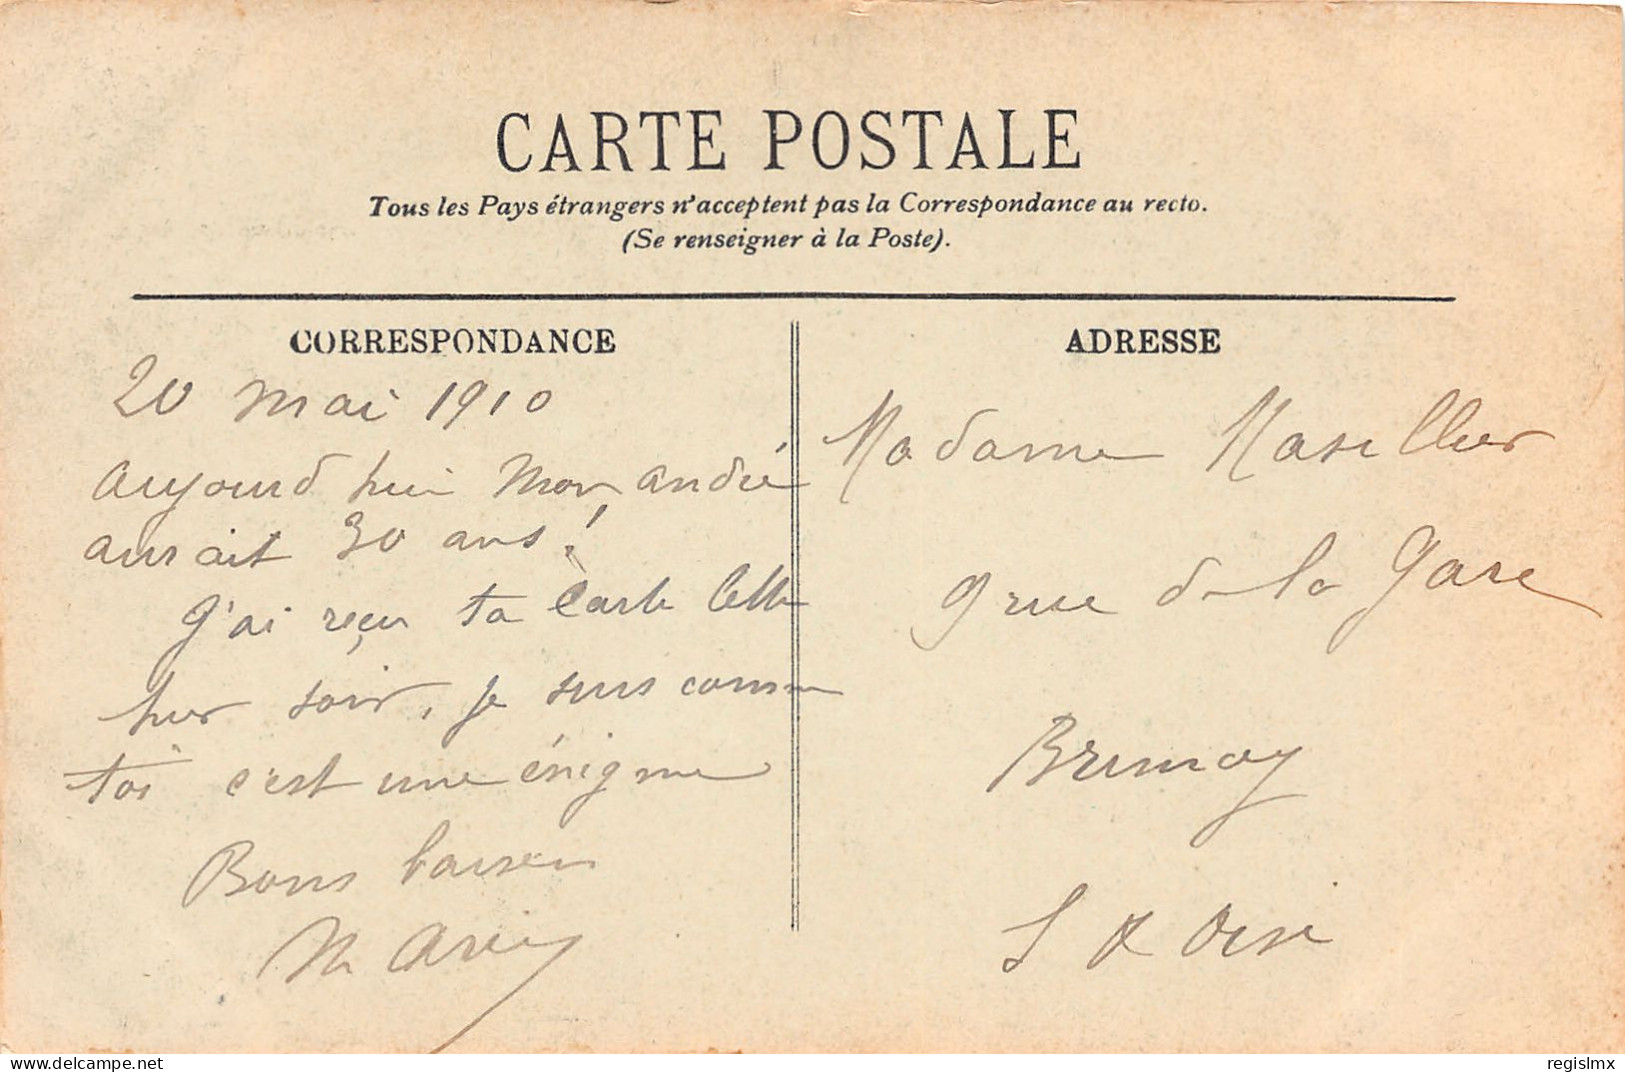 CARTE POSTALE
Tous les Pays étrangers n'acceptent pas la Correspondance au recto.
(Se renseigner à la Poste).
CORRESPONDANCE
20 mai 1910
aujourd hui Mon andré
aurait 30 ans!
J'ai reçu ta Carte lettre
hier soir, je suis comme
toi c'est une énigme
Bons baisers
ADRESSE
Madame
9 rue de la Gare
Brunoy
S & Oise
delcampe.net
regislmx